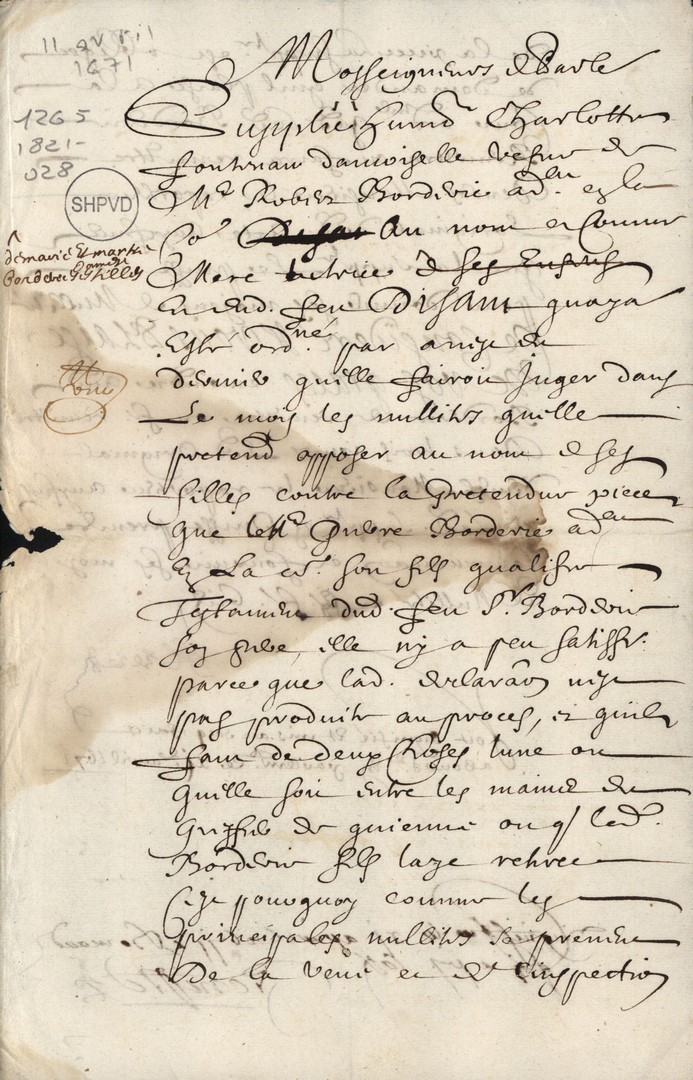 11 avril
1671
1265
1821-
028
SHPVD
Nosseigneurs de Parle
Supplie humt Charlotte
fontenau damoiselle vefue de
Mr Robert Borderie adau en la
Co au nom et comme
Mere tutrice de ses Enfens
de marie et marthe
Borderie ses filles
et dud. feu Disant quaya
Esté ordné par arrest du
dernier quelle fairoit Juger dans
Le mois les nullités quelle
pretend opposer au nom de ses
filles contre la pretendue piece
que leMr Borderie adau
En La cr. son fils qualifie
Testament dud. feu Sr Borderie
son pere, elle n'y a peu satisfr.
parce que lad. declaraon nest
pas produite au proces, et quil
faut de deux choses lune ou
quelle soit entre les mains du
Greffier de guienne ou q/ led.
Borderie fils laye retiree
Cest pourquoy comme les
principales nullités se prenent
De la veue et de linspection